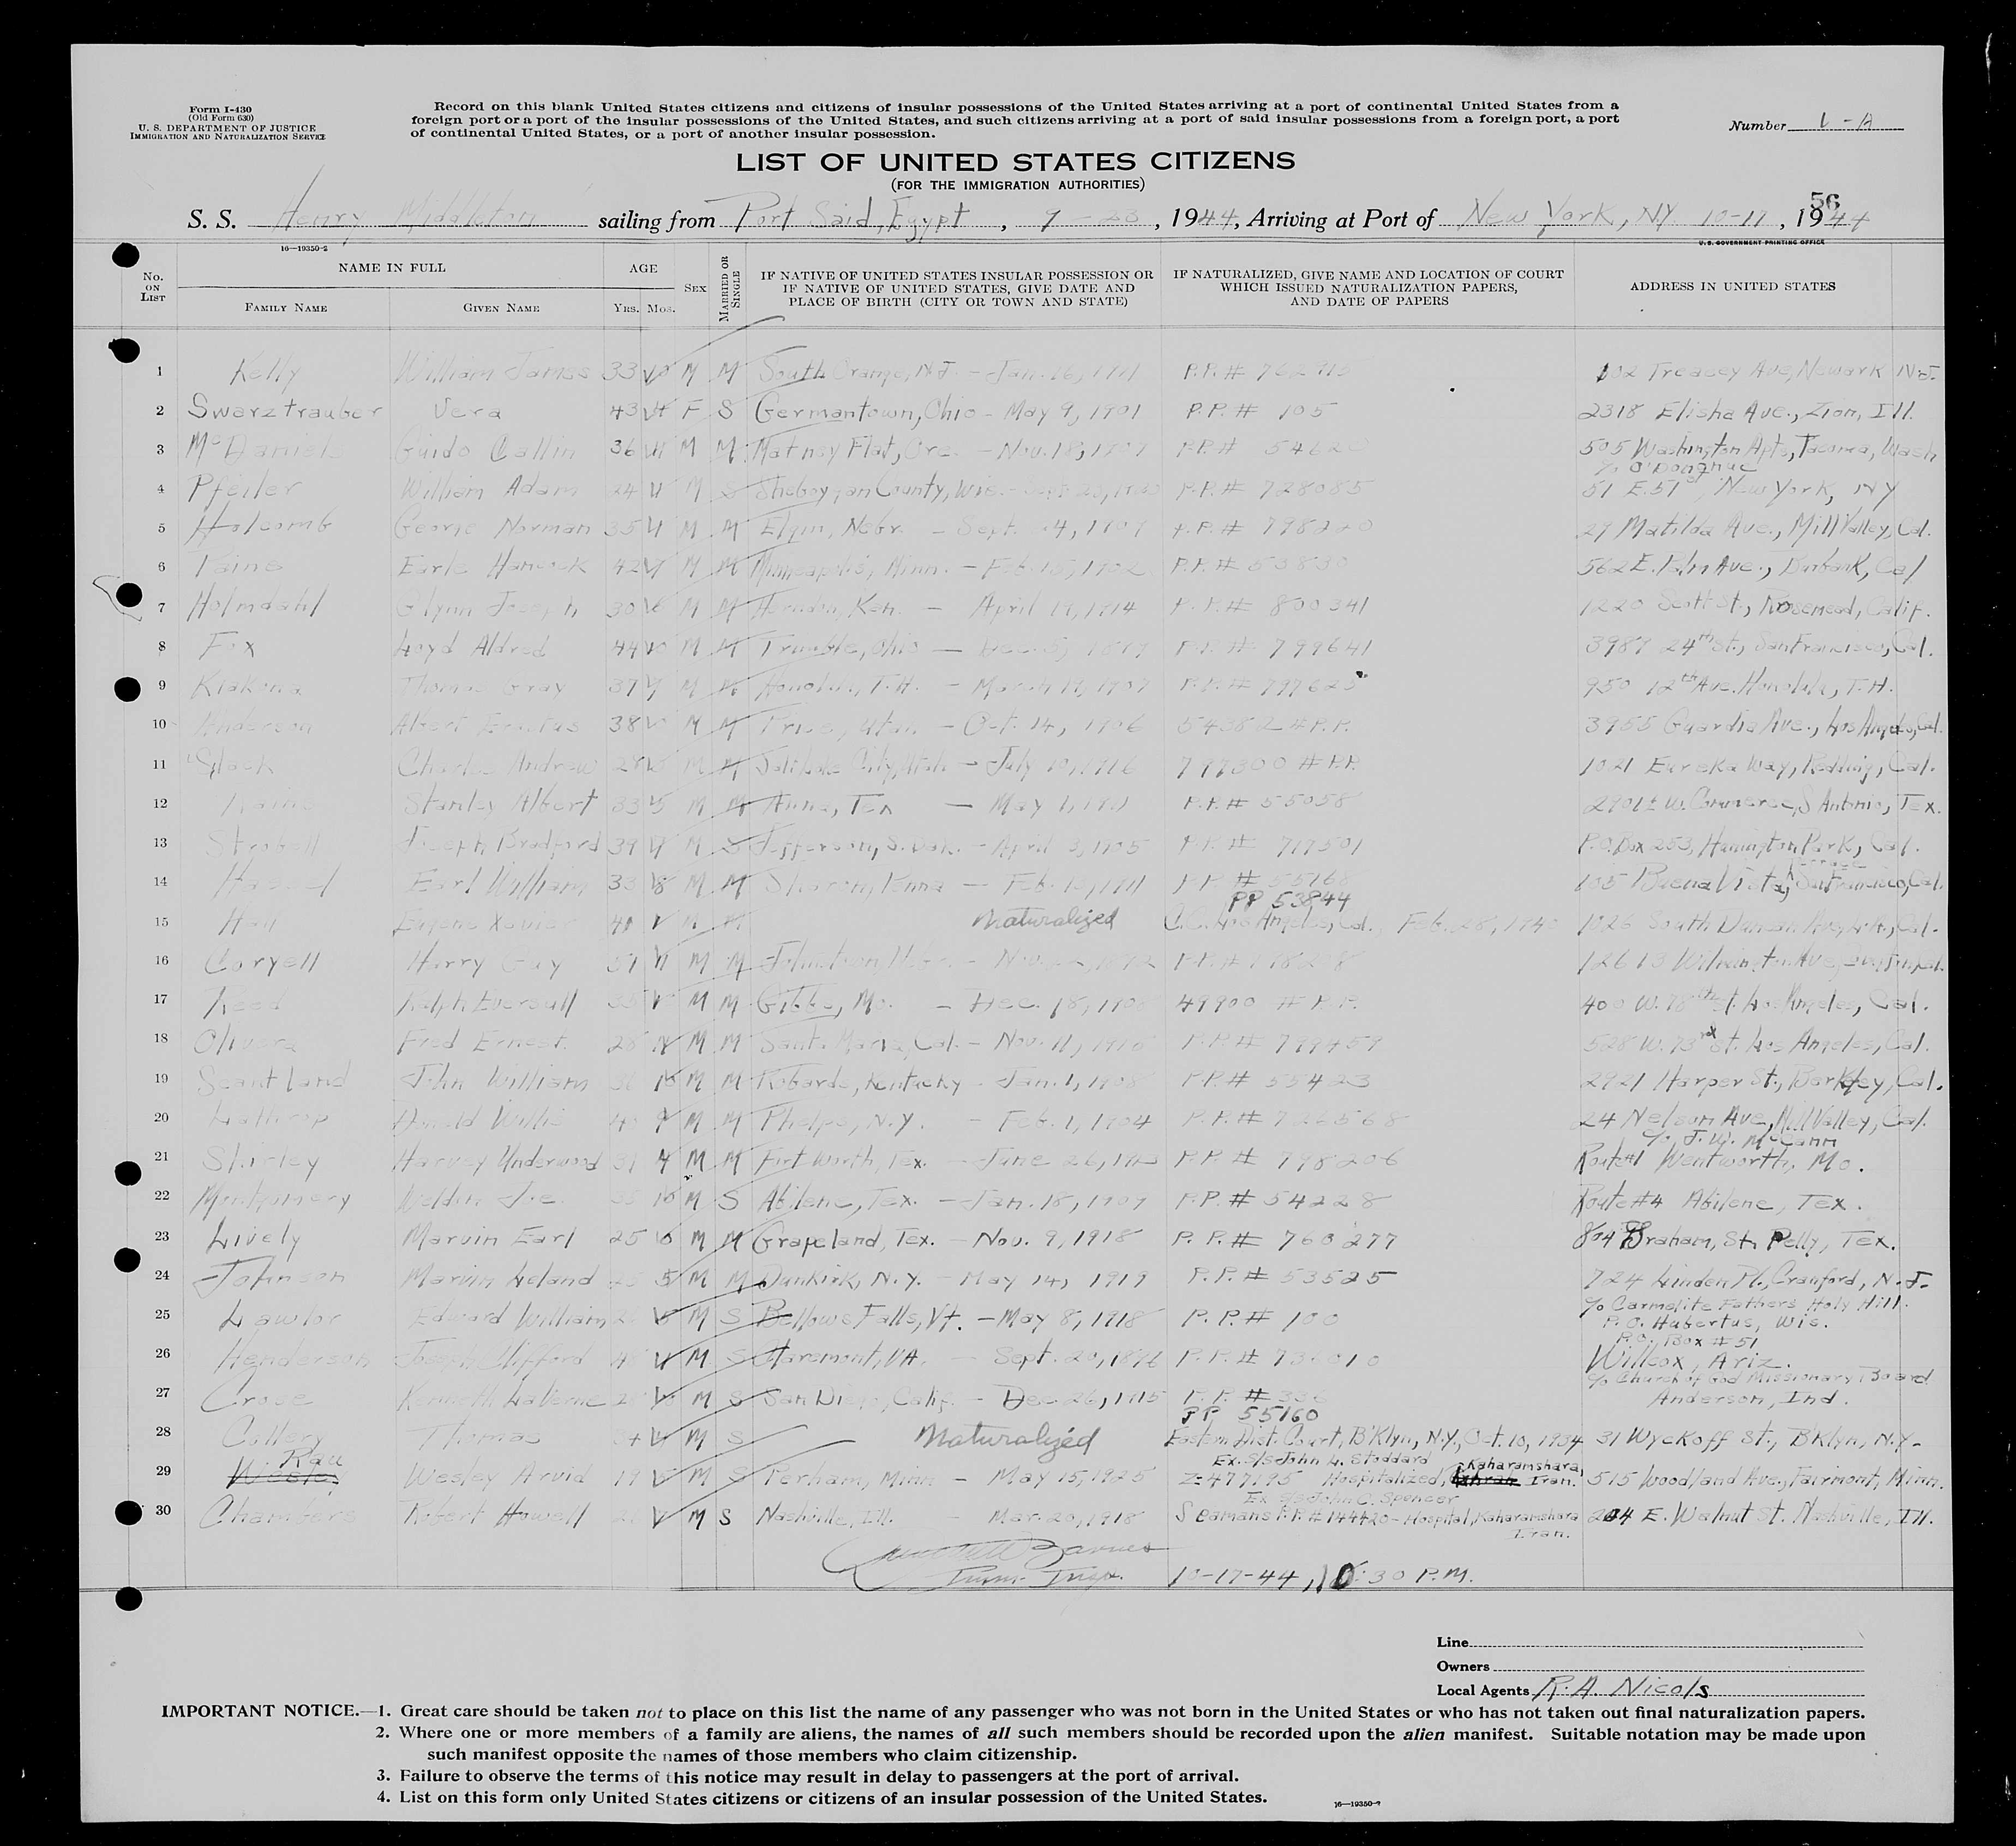 Form I-430
(Old Form 630)
U. S. DEPARTMENT OF JUSTICE
IMMIGRATION AND NATURALIZATION SERVICE
Record on this blank United States citizens and citizens of insular possessions of the United States arriving at a port of continental United States from a
foreign port or a port of the insular possessions of the United States, and such citizens arriving at a port of said insular possessions from a foreign port, a port
of continental United States, or a port of another insular possession.
Number 1-A
LIST OF UNITED STATES CITIZENS
(FOR THE IMMIGRATION AUTHORITIES)
56
S. S. Henry Middleton sailing from Port Said, Egypt, 9-23, 1944, Arriving at Port of New York, N.Y. 10-17, 1944
16—19350-2
U. S. GOVERNMENT PRINTING OFFICE
No. ON LIST
NAME IN FULL
FAMILY NAME GIVEN NAME
AGE
YRS. MOS.
SEX
MARRIED OR SINGLE
IF NATIVE OF UNITED STATES INSULAR POSSESSION OR
IF NATIVE OF UNITED STATES, GIVE DATE AND
PLACE OF BIRTH (CITY OR TOWN AND STATE)
IF NATURALIZED, GIVE NAME AND LOCATION OF COURT
WHICH ISSUED NATURALIZATION PAPERS,
AND DATE OF PAPERS
ADDRESS IN UNITED STATES
1 Kelly William James 33 M M South Orange, N.J. - Jan. 16, 1911 P.P.# Treacey Ave, Newark N.J.
2 Swarztrauber Vera 43 F S Germantown, Ohio - May 9, 1901 P.P.# 105 2318 Elisha Ave., Zion, Ill.
3 McDaniels Guido Callin 36 M M Matney Flat, Ore. - Nov. 18, 1907 P.P.# 505 Washington Apts, Tacoma, Wash
% O'Donghue
4 Pfeiler William Adam 24 M S Sheboygan County, Wis. P.P.# 728085 51 E. 51st, New York, NY
5 Holcomb George Norman 35 M M Elgin, Nebr. - Sept. P.P.# 798220 27 Matilda Ave., Mill Valley, Cal.
6 Paine Earle Hancock 42 M M Minneapolis, Minn. - Feb. 15, 1902 P.P.# 53830 562 E. Palm Ave., Burbank, Cal
7 Holmdahl Glynn Joseph 30 M M Herndon, Kan - April 19, 1914 P.P.# 800341 1220 Scott St., Rosemead, Calif.
8 Fox Loyd Aldred 44 M M Trimble, Ohio - Dec. P.P.# 799641 3987 24th St., San Francisco, Cal.
9 Kiakona Thomas Gray 37 M M Honolulu, T.H. - March 19, 1907 P.P.# 797625 950 12th Ave. Honolulu, T.H.
10 Anderson Albert 38 M M Price, Utah - Oct. 14, 1906 54382 # P.P. 3955 Guardia Ave., Los Angeles, Cal.
11 Charles Andrew M M Salt Lake City, Utah - July 10, 1916 797300 # P.P. 1021 Eureka Way, Redding, Cal.
12 Stanley Albert 33 5 M M Anna, Tex - May 1, 1911 P.P.# 55058 2901½ W. Commerce, S Antonio, Tex.
13 Joseph Bradford 39 M S Jefferson, S. Dak. - April 3, 1905 P.P.# 717501 P.O. Box 253, Park, Cal.
14 Earl William 33 M M Sharon, Penna - Feb. 1911 P.P.# 55168 105 Buena Vista Terrace, San Francisco, Cal.
PP 53844
15 Eugene Xavier M M Naturalized Los Angeles, Cal., Feb. 28, 1940 1026 South Duncan Ave, Cal.
16 Coryell Harry Guy 51 M M Johnstown, - Nov. P.P.# 12613 Wilmington Ave,
17 Reed Ralph Eversull 35 M M Gibbs, Mo. - Dec. 18, 1908 49900 # P.P. 400 W. 78th St. Los Angeles, Cal.
18 Olivera Fred Ernest 28 M M Santa Maria, Cal. - Nov. 11, P.P.# 799459 528 W. 73rd St. Los Angeles, Cal.
19 Scantland John William 36 M M Robards, Kentucky - Jan. 1, 1908 P.P.# 55423 2921 Harper St., Berkley, Cal.
20 Lathrop Donald Willis 40 M M Phelps, N.Y. - Feb. 1, 1904 P.P.# 726568 24 Nelson Ave, Mill Valley, Cal.
% J. W. McCann
21 Shirley Harvey Underwood 31 M M Fort Worth, Tex. - June 26, P.P.# 798206 Route #1 Wentworth, Mo.
22 Montgomery Weldon Joe M S Abilene, Tex. - Jan. 18, 1909 P.P.# 54228 Route #4 Abilene, Tex.
23 Lively Marvin Earl 25 M M Grapeland, Tex. - Nov. 9, 1918 P.P.# 760277 804 Graham, St. Pelly, Tex.
24 Johnson Marvin Leland 25 5 M M Dunkirk, N.Y. - May 14, 1919 P.P.# 53525 724 Linden Pl., Cranford, N.J.
25 Lawlor Edward William 26 M S Bellows Falls, Vt. - May 8, 1918 P.P.# 100 % Carmelite Fathers Holy Hill.
P.O. Hubertus, Wis.
P.O. Box #51
26 Henderson Joseph Clifford 48 M S Claremont, VA. - Sept. 20, 1896 P.P.# 736010 Willcox, Ariz.
% Church of God Missionary Board
27 Crose Kenneth LaVerne 28 M S San Diego, Calif. - Dec. 26, 1915 P.P.# 336 Anderson, Ind.
PP 55160
28 Collery Thomas 34 M S Naturalized Eastern Dist. Court, B'Klyn, N.Y., Oct. 10, 1934 31 Wyckoff St., B'Klyn, N.Y.
Rau Ex. S/S John L. Stoddard Kaharamshara,
29 Wesley Arvid 19 M S Perham, Minn - May 15, 1925 Z-477195 Hospitalized, Iran. 515 Woodland Ave., Fairmont, Minn.
Ex S/S John C. Spencer
30 Chambers Robert Howell 26 M S Nashville, Ill. - Mar. 20, 1918 Seamans P.P.# 144420 - Hospital, Kaharamshara 204 E. Walnut St. Nashville, Ill.
Iran.
Barnes
Imm. Insp. 10-17-44, 10:30 P.M.
Line
Owners
Local Agents R. A. Nicols
IMPORTANT NOTICE.—1. Great care should be taken not to place on this list the name of any passenger who was not born in the United States or who has not taken out final naturalization papers.
2. Where one or more members of a family are aliens, the names of all such members should be recorded upon the alien manifest. Suitable notation may be made upon
such manifest opposite the names of those members who claim citizenship.
3. Failure to observe the terms of this notice may result in delay to passengers at the port of arrival.
4. List on this form only United States citizens or citizens of an insular possession of the United States.
16—19350-2